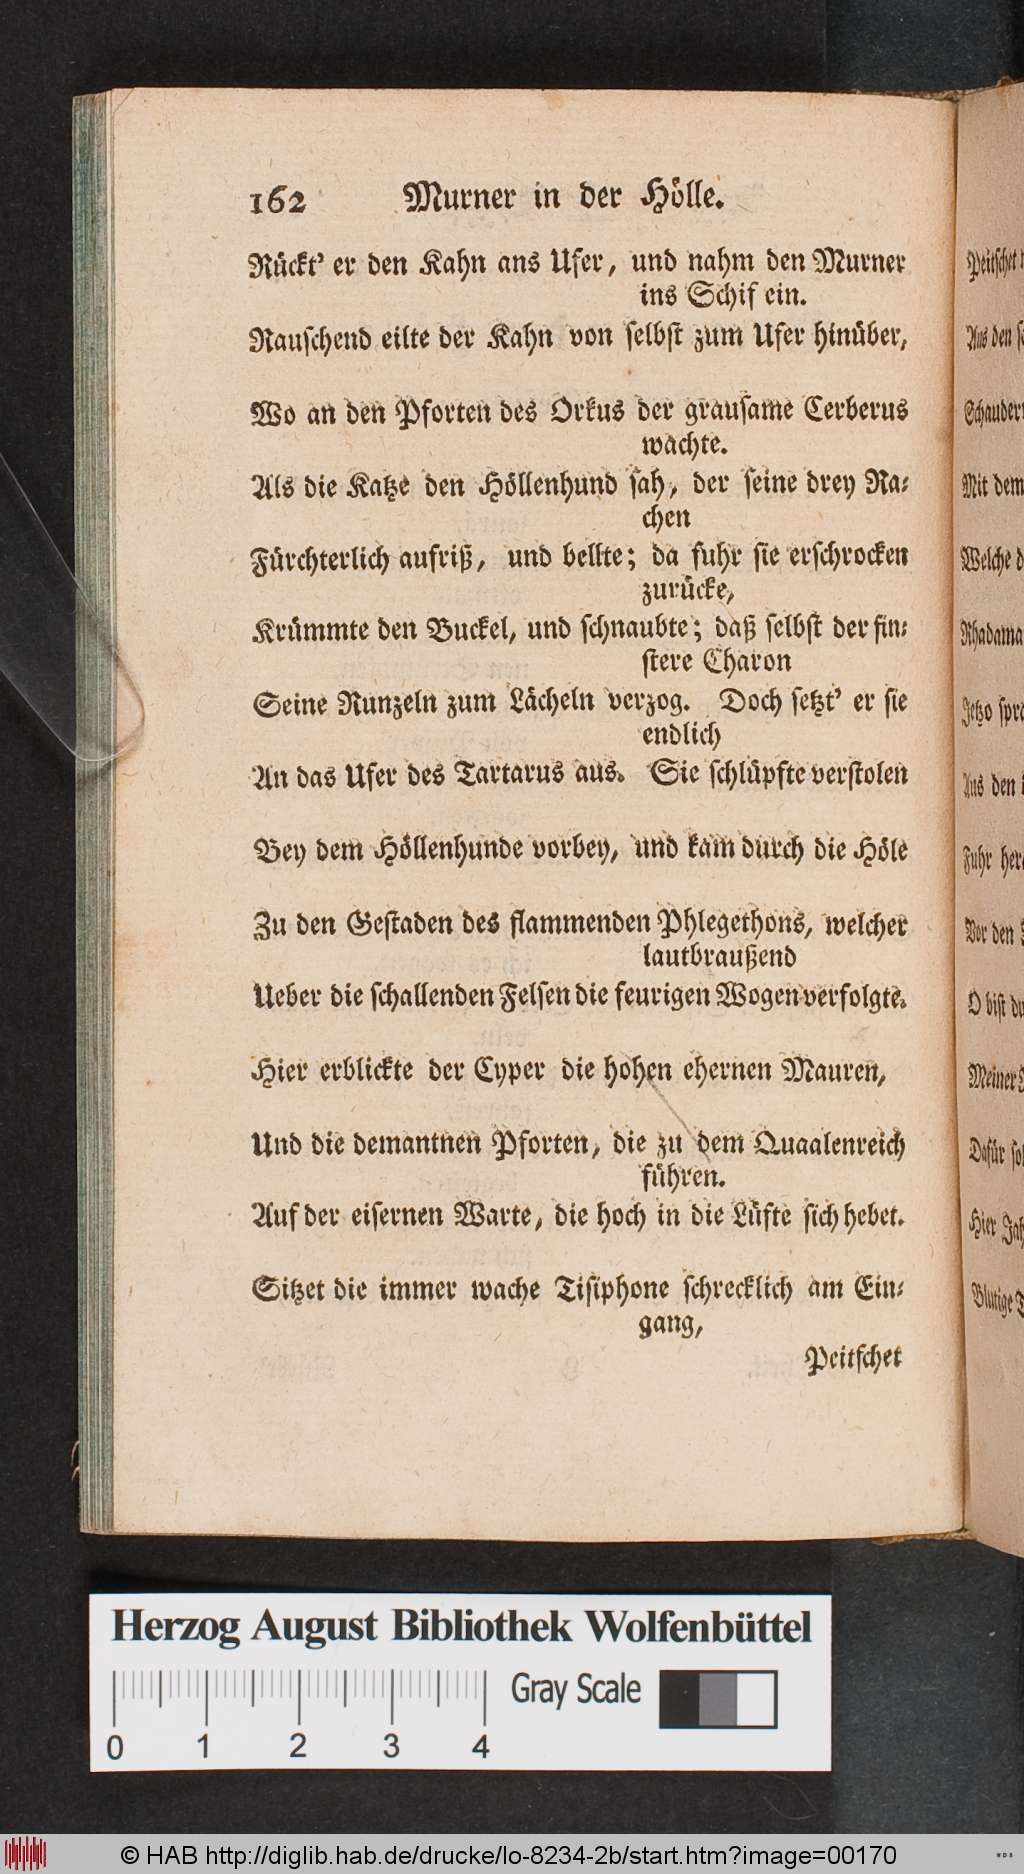 162 Murner in der Hölle.
Rückt' er den Kahn ans Ufer, und nahm den Murner
ins Schif ein.
Rauschend eilte der Kahn von selbst zum Ufer hinüber,
Wo an den Pforten des Orkus der grausame Cerberus
wachte.
Als die Katze den Höllenhund sah, der seine drey Ra-
chen
Fürchterlich aufriß, und bellte; da fuhr sie erschrocken
zurücke,
Krümmte den Buckel, und schnaubte; daß selbst der fin-
stere Charon
Seine Runzeln zum Lächeln verzog. Doch setzt' er sie
endlich
An das Ufer des Tartarus aus. Sie schlüpfte verstolen
Bey dem Höllenhunde vorbey, und kam durch die Höle
Zu den Gestaden des flammenden Phlegethons, welcher
lautbraußend
Ueber die schallenden Felsen die feurigen Wogen verfolgte.
Hier erblickte der Cyper die hohen ehernen Mauren,
Und die demantnen Pforten, die zu dem Quaalenreich
führen.
Auf der eisernen Warte, die hoch in die Lüfte sich hebet.
Sitzet die immer wache Tisiphone schrecklich am Ein-
gang,
Peitschet
Peitschet
Aus den
Schauder
Mit dem
Welche
Rhadama
Jetzo
Aus den
Fuhr
Vor den
O bist
Meiner
Dafür
Hier
Blutige
Herzog August Bibliothek Wolfenbüttel
Gray Scale
0 1 2 3 4
© HAB http://diglib.hab.de/drucke/lo-8234-2b/start.htm?image=00170